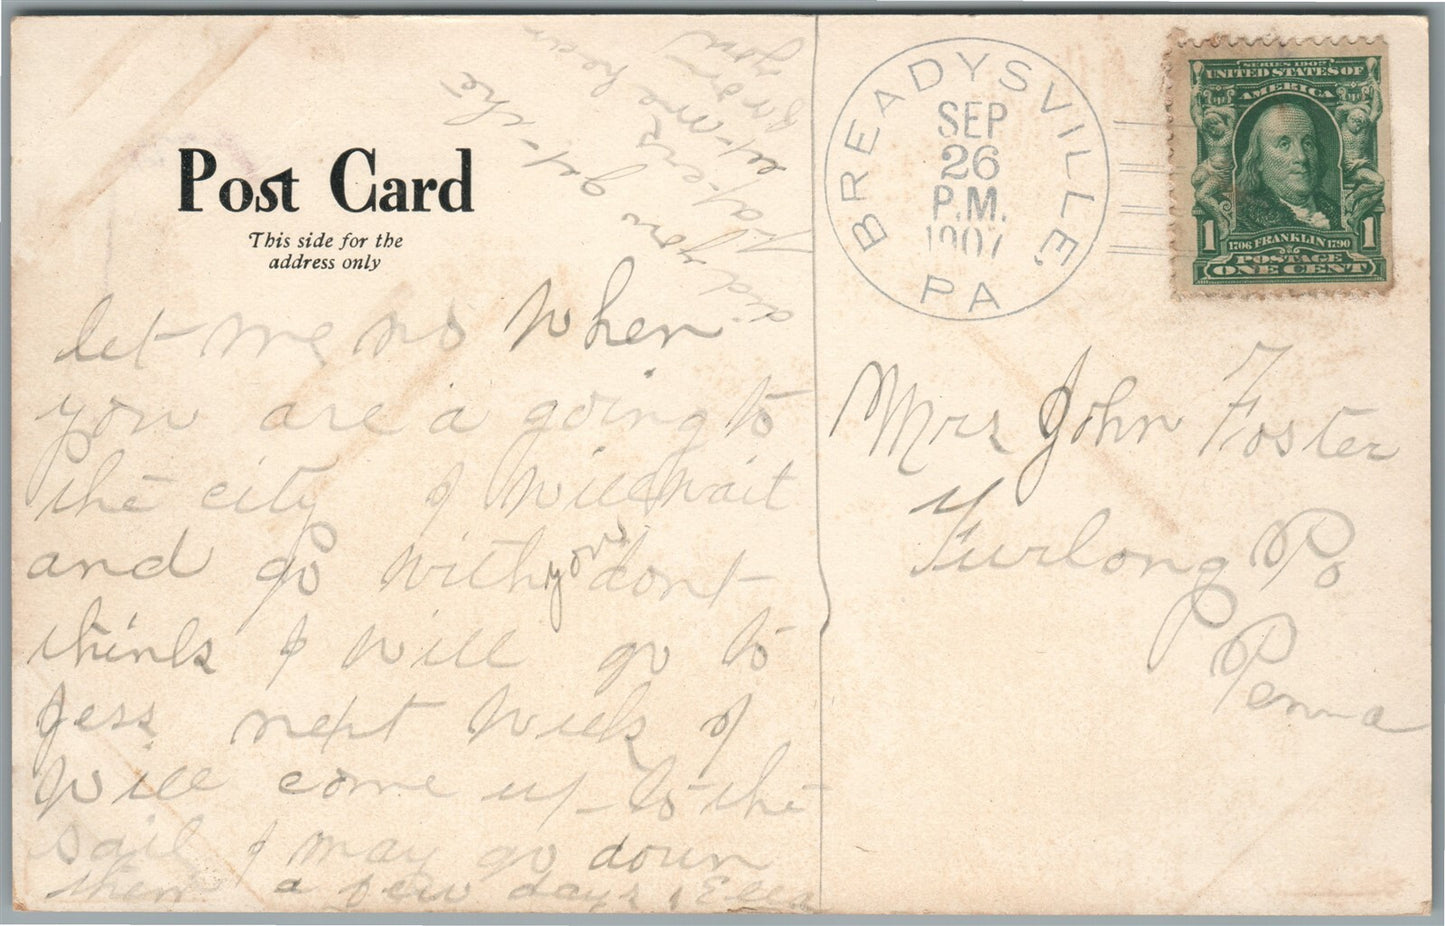 Post Card
This side for the
address only
did you get the
papers
let me hear
from
you
let me no when
you are a going to
the city I will wait
and go with you dont
think I will go to
Jess next week I
will come up to the
sail I may go down
then a few days Ella
BREADYSVILLE, PA
SEP
26
P.M.
1907
SERIES 1902
UNITED STATES OF
AMERICA
1 1706 FRANKLIN 1790 1
POSTAGE
ONE CENT
Mrs John Foster
Furlong Po
Penna